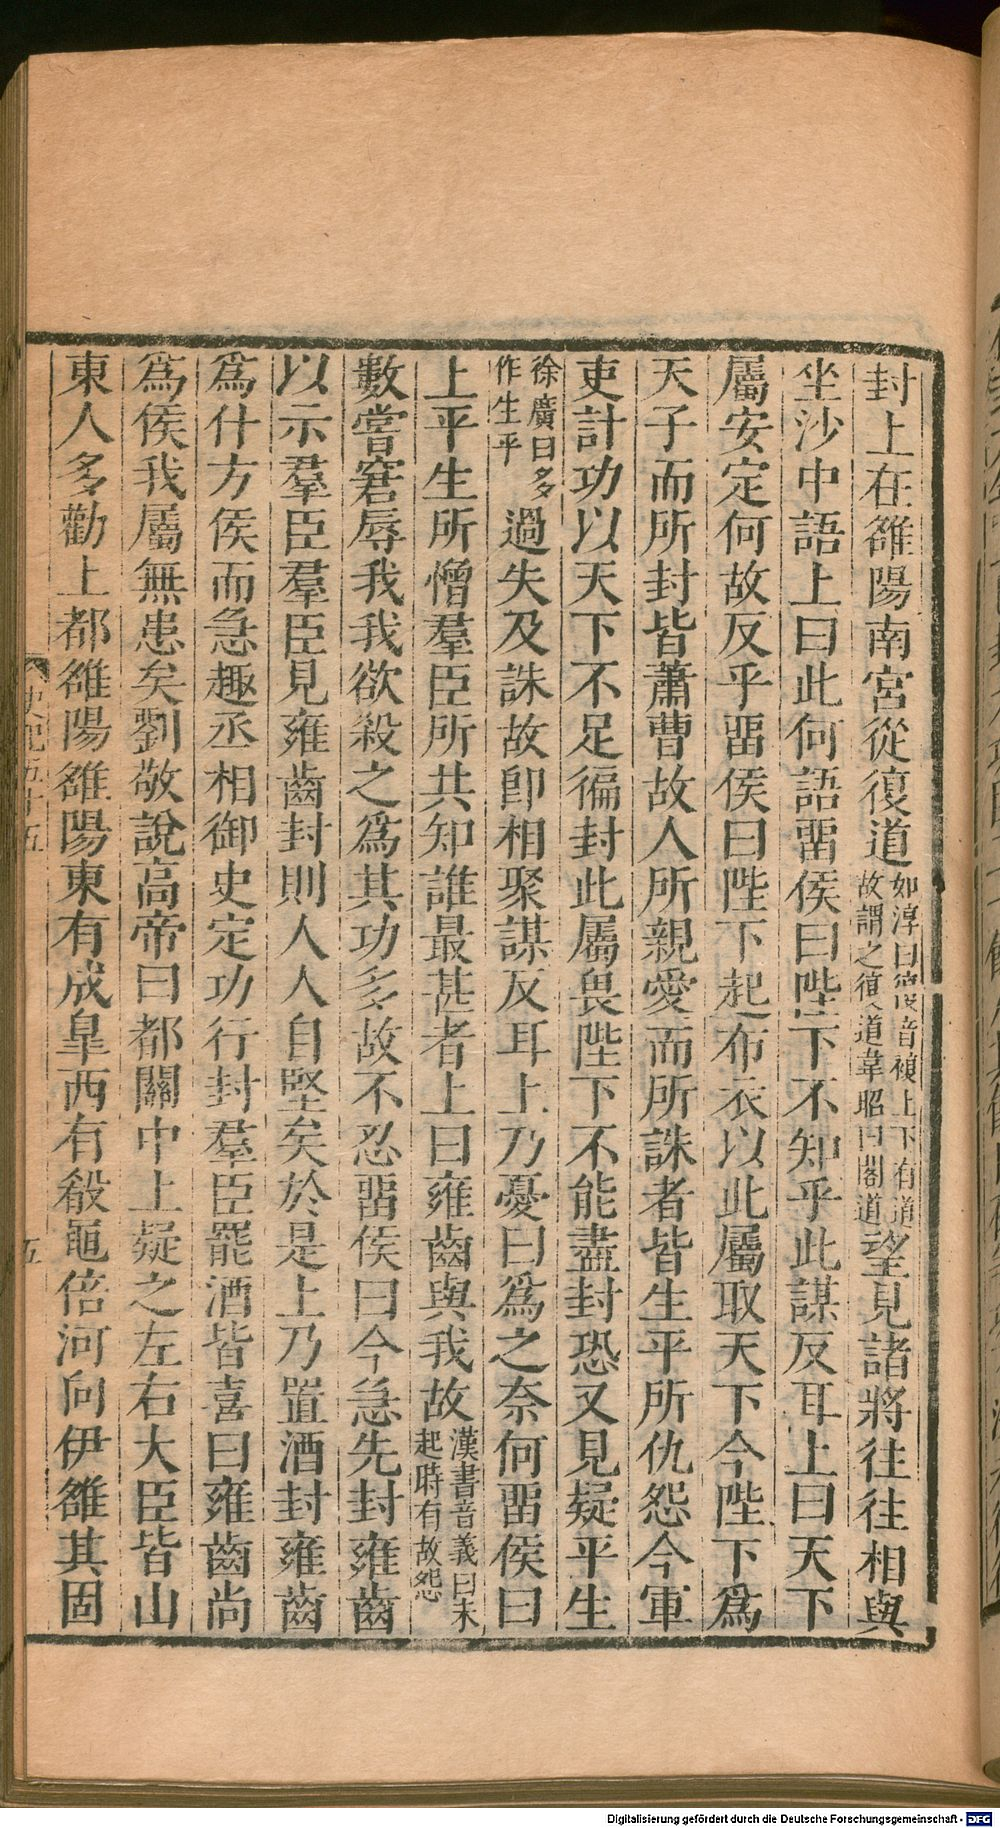 封上在雒陽南宮從復道如淳曰復音複上下有道故謂之復道韋昭曰閣道望見諸將往往相與
坐沙中語上曰此何語畱侯曰陛下不知乎此謀反耳上曰天下
屬安定何故反乎畱侯曰陛下起布衣以此屬取天下今陛下爲
天子而所封皆蕭曹故人所親愛而所誅者皆生平所仇怨今軍
吏計功以天下不足徧封此屬畏陛下不能盡封恐又見疑平生
徐廣曰多作生平過失及誅故卽相聚謀反耳上乃憂曰爲之奈何畱侯曰
上平生所憎羣臣所共知誰最甚者上曰雍齒與我故漢書音義曰未起時有故怨
數嘗窘辱我我欲殺之爲其功多故不忍畱侯曰今急先封雍齒
以示羣臣羣臣見雍齒封則人人自堅矣於是上乃置酒封雍齒
爲什方侯而急趣丞相御史定功行封羣臣罷酒皆喜曰雍齒尚
爲侯我屬無患矣劉敬說高帝曰都關中上疑之左右大臣皆山
東人多勸上都雒陽雒陽東有成臯西有殽黽倍河向伊雒其固
史記五十五
五
Digitalisierung gefördert durch die Deutsche Forschungsgemeinschaft - DFG